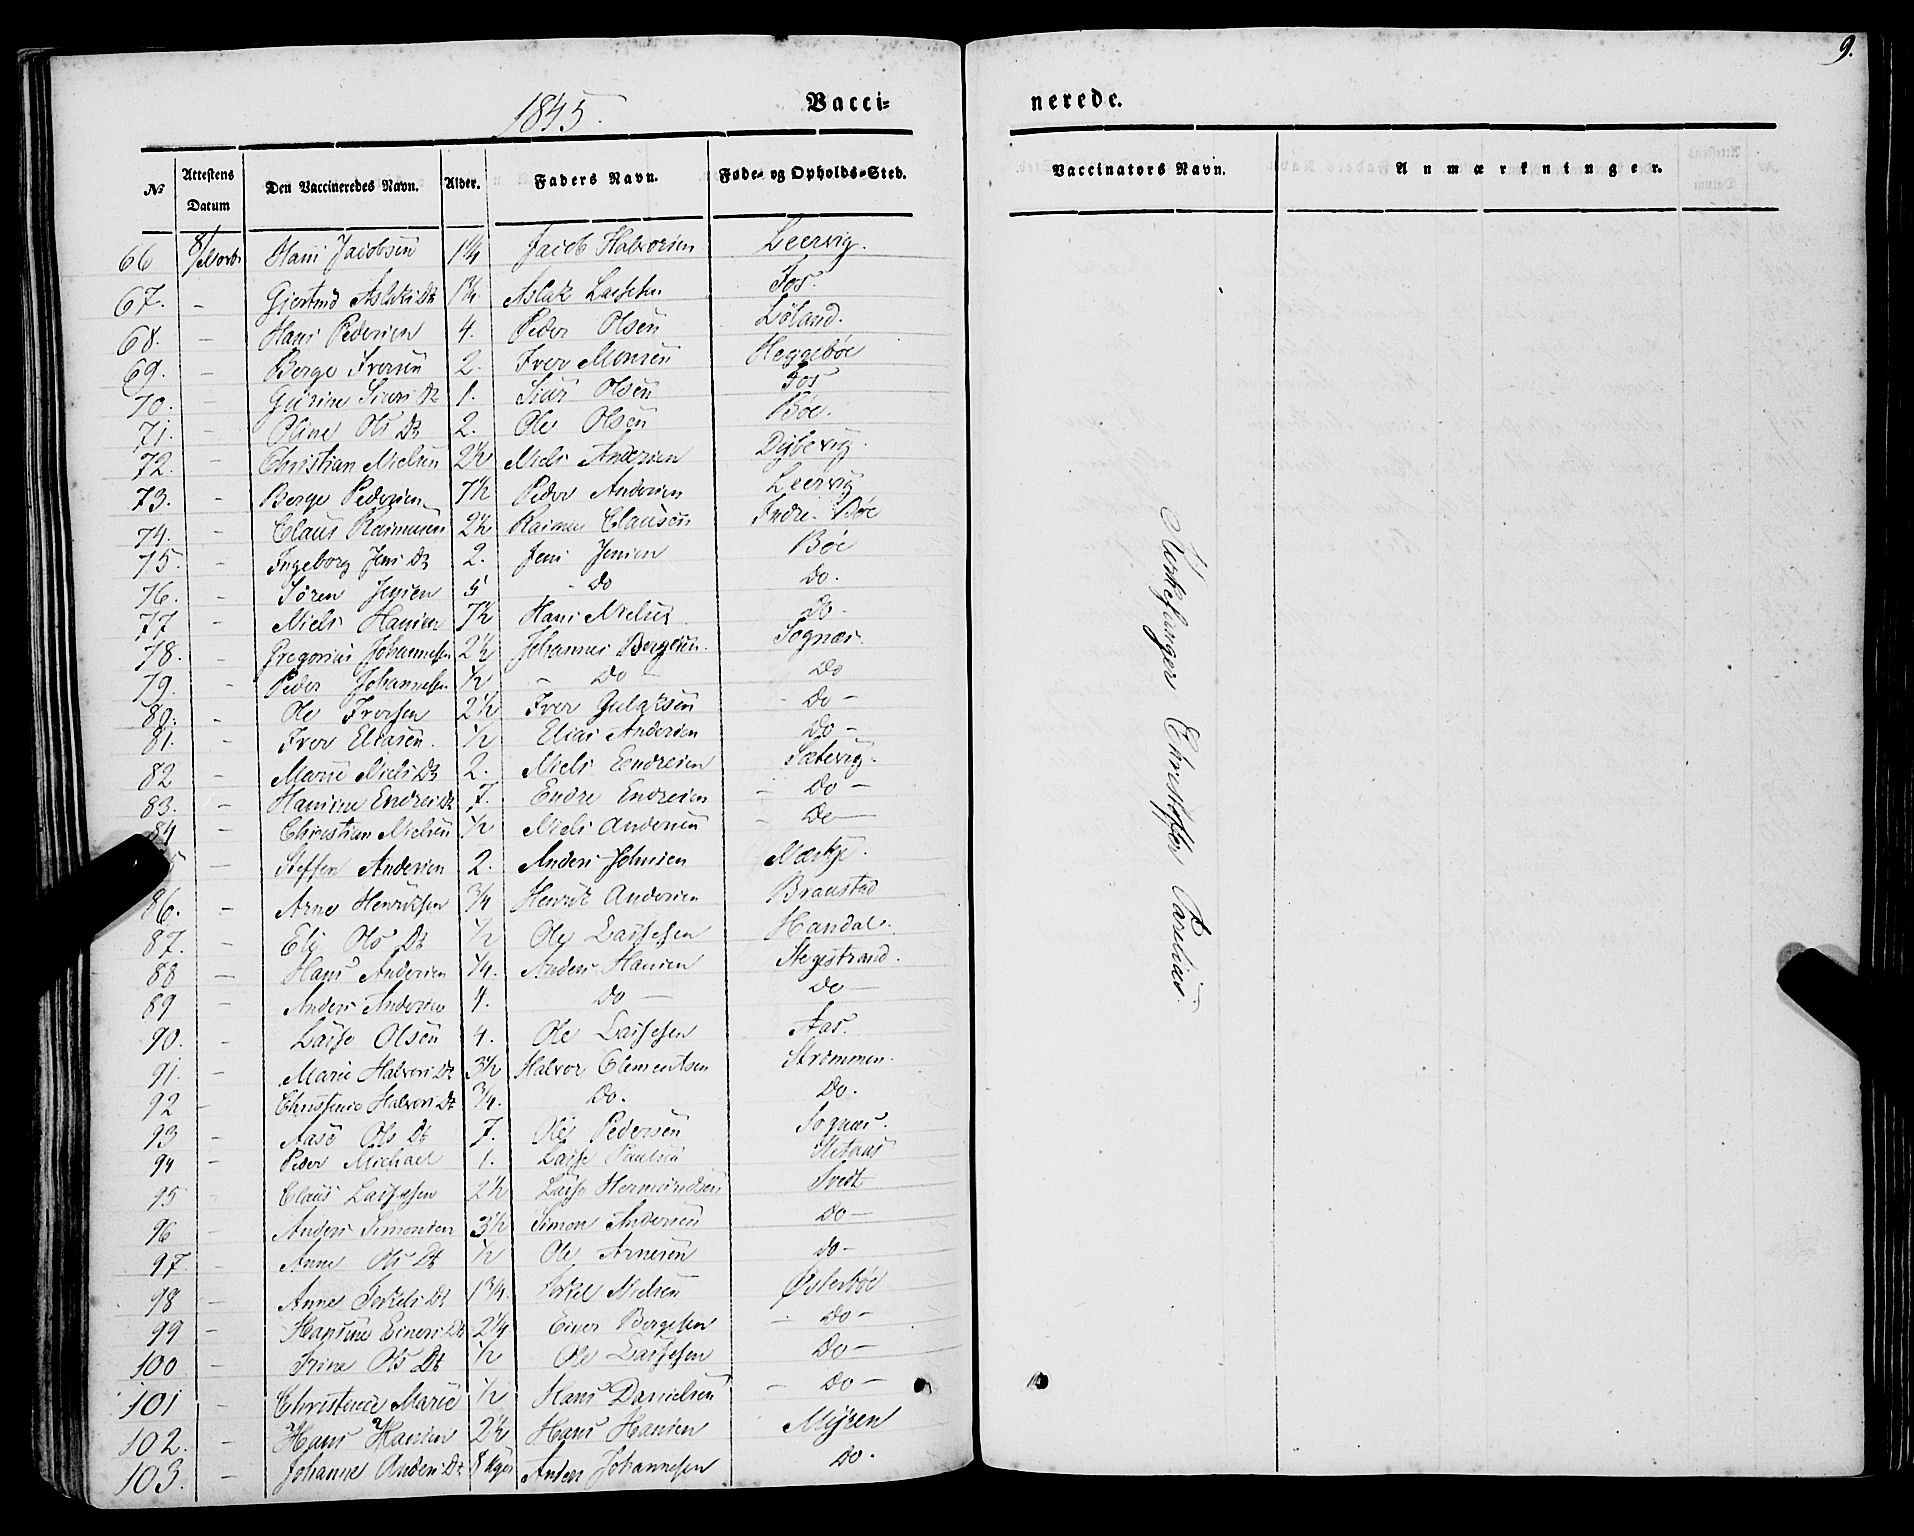 9.
1845.
Vacci-
nerede.
№ | Attestens Datum | Den Vaccineredes Navn. | Alder. | Faders Navn. | Føde- og Opholds-Sted. | Vaccinators Navn. | Anmærkninger.
66 | 8/ Novbr | Hans Jacobsen | 1¼ | Jacob Halvorsen | Leervig.
67. | - | Gjertrud Aslaks Dt | 1¾ | Aslak Larsen | Fos.
68. | - | Hans Pedersen | 4. | Peder Olsen | Løland.
69. | - | Berge Iversen | 2. | Iver Monsen | Heggebøe
70. | - | Gurine Siurs Dt | 1. | Siur Olsen | Fos
71. | - | Oline Ols Dt | 2. | Ole Olsen | Bøe.
72. | - | Christian Nielsen | 2½ | Niels Andersen | Dybevig.
73. | - | Berge Pedersen | 7½ | Peder Andersen | Leervig
74. | - | Claus Rasmusen | 2½ | Rasmus Clausen | Indre Bøe
75. | - | Ingeborg Jens Dt | 2. | Jens Jensen | Bøe
76. | - | Søren Jensen | 5 | - Do | Do.
77 | - | Niels Hansen | 7½ | Hans Nielsen | Do -
78. | - | Gregorius Johannesen | 2½ | Johannes Bergesen. | Sognæs
79. | - | Peder Johannesen | ½ | - Do - | Do
80. | - | Ole Iversen | 2½ | Iver Gulaksen | - Do -
81. | - | Iver Eliasen. | ½ | Elias Andersen | Do -
82 | - | Marie Niels Dt | 2. | Niels Endresen | Sætevig.
83. | - | Hansine Endres Dt | 7. | Endre Endresen | - Do -
84 | - | Christian Nielsen | ½ | Niels Andersen | - Do -
5 | - | Steffen Andersen | 2. | Anders Johnsen | Mærkje.
86. | - | Arne Henriksen | ¾ | Henrik Andersen | Braustad
87. | - | Eli Ols Dt | ½ | Ole Larsesen | Handal.
88 | - | Hans Andersen | ¼. | Anders Hansen | Stegstrand.
89 | - | Anders Andersen | 4. | Do - | Do -
90. | - | Larse Olsen | 4. | Ole Larsesen | Aas.
91. | - | Marie Halvors Dt | 3½ | Halvor Clementsen | Strømmen.
92 | - | Christense Halvors Dt | ¾. | Do. | Do.
93 | - | Aase Ols Dt | 7. | Ole Pedersen | Sognæs.
94 | - | Peder Michael | 1. | Larse Paulsen
95 | - | Claus Larsesen | 2½ | Larse Hermundsen | Tvedt
96 | - | Anders Simonsen | 3½ | Simon Andersen | Do -
97. | - | Anne Ols Dt | ½ | Ole Arnesen | Do -
98 | - | Anne Torkels Dt | 1¾. | Torkel Nielsen | Østerbøe
99 | - | Hansine Einers Dt | 2¼ | Einer Bergesen | - Do -
100 | - | Trine Ols Dt | ½ | Ole Larsesen | Do -
101 | - | Christense Marie | ½ | Hans Danielsen | - Do -
102. | - | Hans Hansen | 2½ | Hans Hansen | Myren
103. | - | Johanne Anders Dt | 8 Uger | Anders Johannesen | Do.
Kirkesanger Christoffer Paselius.